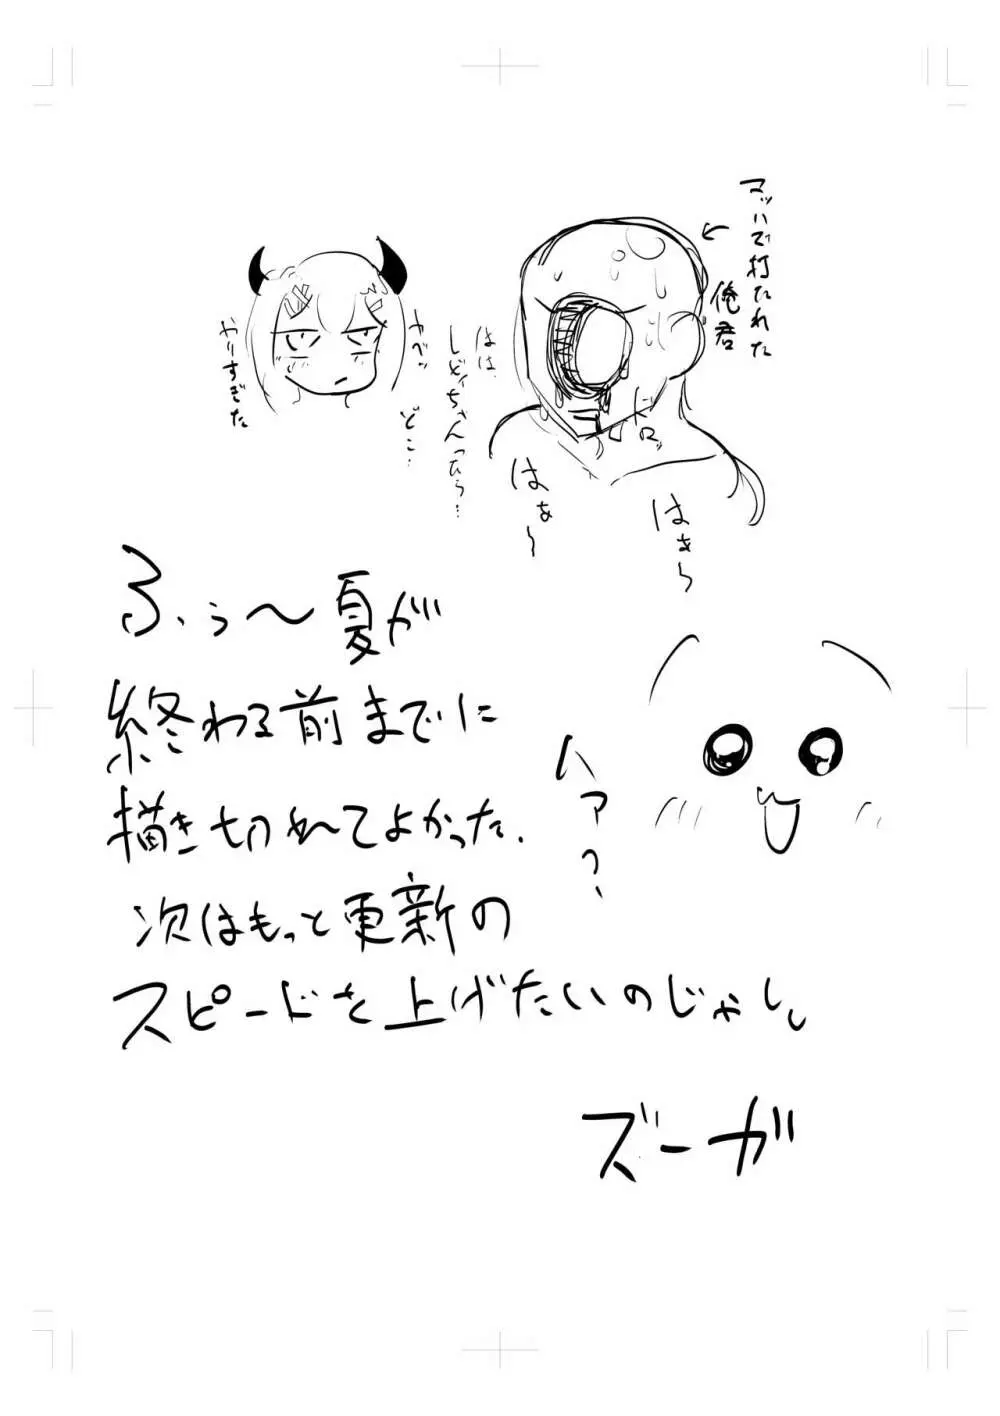 マッハで打たれた
俺君
ヤベッ
やりすぎた
どこ…
はは、
しどいちゃんったら…
ドロッ
はぁ〜
はぁ〜
ふぅ〜夏が
終わる前までに
描き切れてよかった.
次はもっと更新の
スピードを上げたいのじゃし。
ハァ?
ズーガ